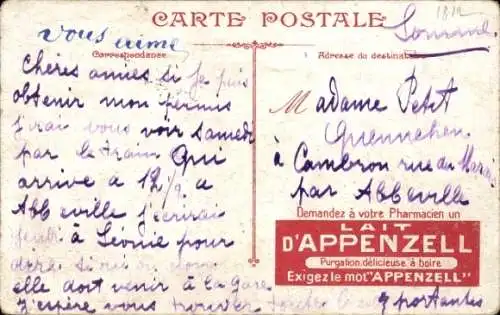 CARTE POSTALE
1812
Somme
vous aime
Correspondance
Adresse du destinat
Chères amies si je puis
obtenir mon permis
j'irai vous voir samedi
par le train qui
arrive à 12 a
Abbeville j'écrirai
jeudi à Léonie pour
si
elle doit venir à la Gare
J'espère vous trouver
portantes
Madame Petit
Guennehen
à Cambron rue du Marais
par Abbeville
Demandez à votre Pharmacien un
LAIT
D'APPENZELL
Purgation, délicieuse à boire
Exigez le mot "APPENZELL"